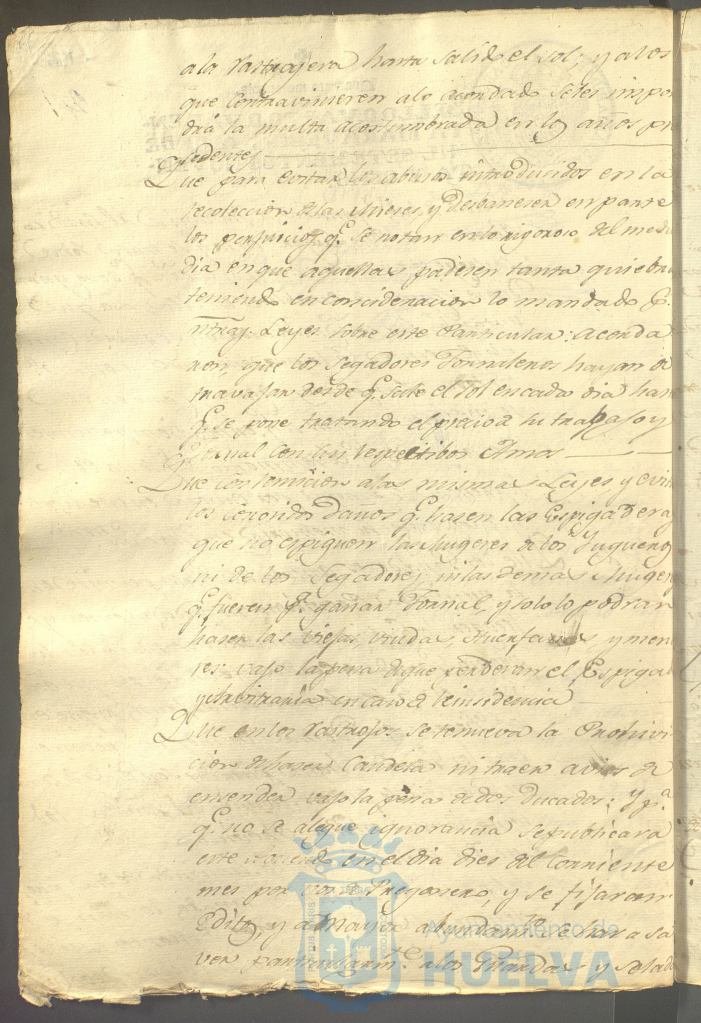 a la Rastrojera hasta salido el sol; y a los
que contravinieren a lo acordado se les impon
drá la multa acostumbrada en los años pre
sedentes
Que para cortar los abusos introducidos en la
recoleccion de las Mieses, y desbaneser en parte
los perjuicios q.e se notan en lo rigoroso del medio
dia en que aquellas padesen tanta quiebra
teniendo en concideracion lo mandado p.r
ntras. Leyes sobre este Particular: acorda
ron, que los Segadores Jornaleros hayan de
travajar desde q.e sale el Sol en cada dia has
q.e se pone tratando el precio a su trabajo y
Jornal con sus respectibos Amos
Que con tencion a las mismas Leyes y evitar
los seguidos Daños q.e hasen las Espigaderas
que no espiguen las Mugeres de los Yugueros
ni de los Segadores, ni las demas Mugeres
q.e fueren p.a ganar Jornal, y solo lo podran
haser las viejas, viudas, Huerfanas y meno
res vajo la pena de que perderan el Espiga
y arbitraria en caso de Reinsidencia
Que en los Rastrojos se renueva la Prohivi
cion de haser Candela ni traer avios de
encender vajo la pena de dos Ducados; Y p.a
q.e no se alegue ignorancia se publicara
este acuerdo en el dia dies del Corriente
mes por voz de Pregonero, y se fijaran
Edictos, y a Mayor abundam.to se hara sa
ver particularm.te a los Guardas y Selado
Ayuntamiento de
HUELVA